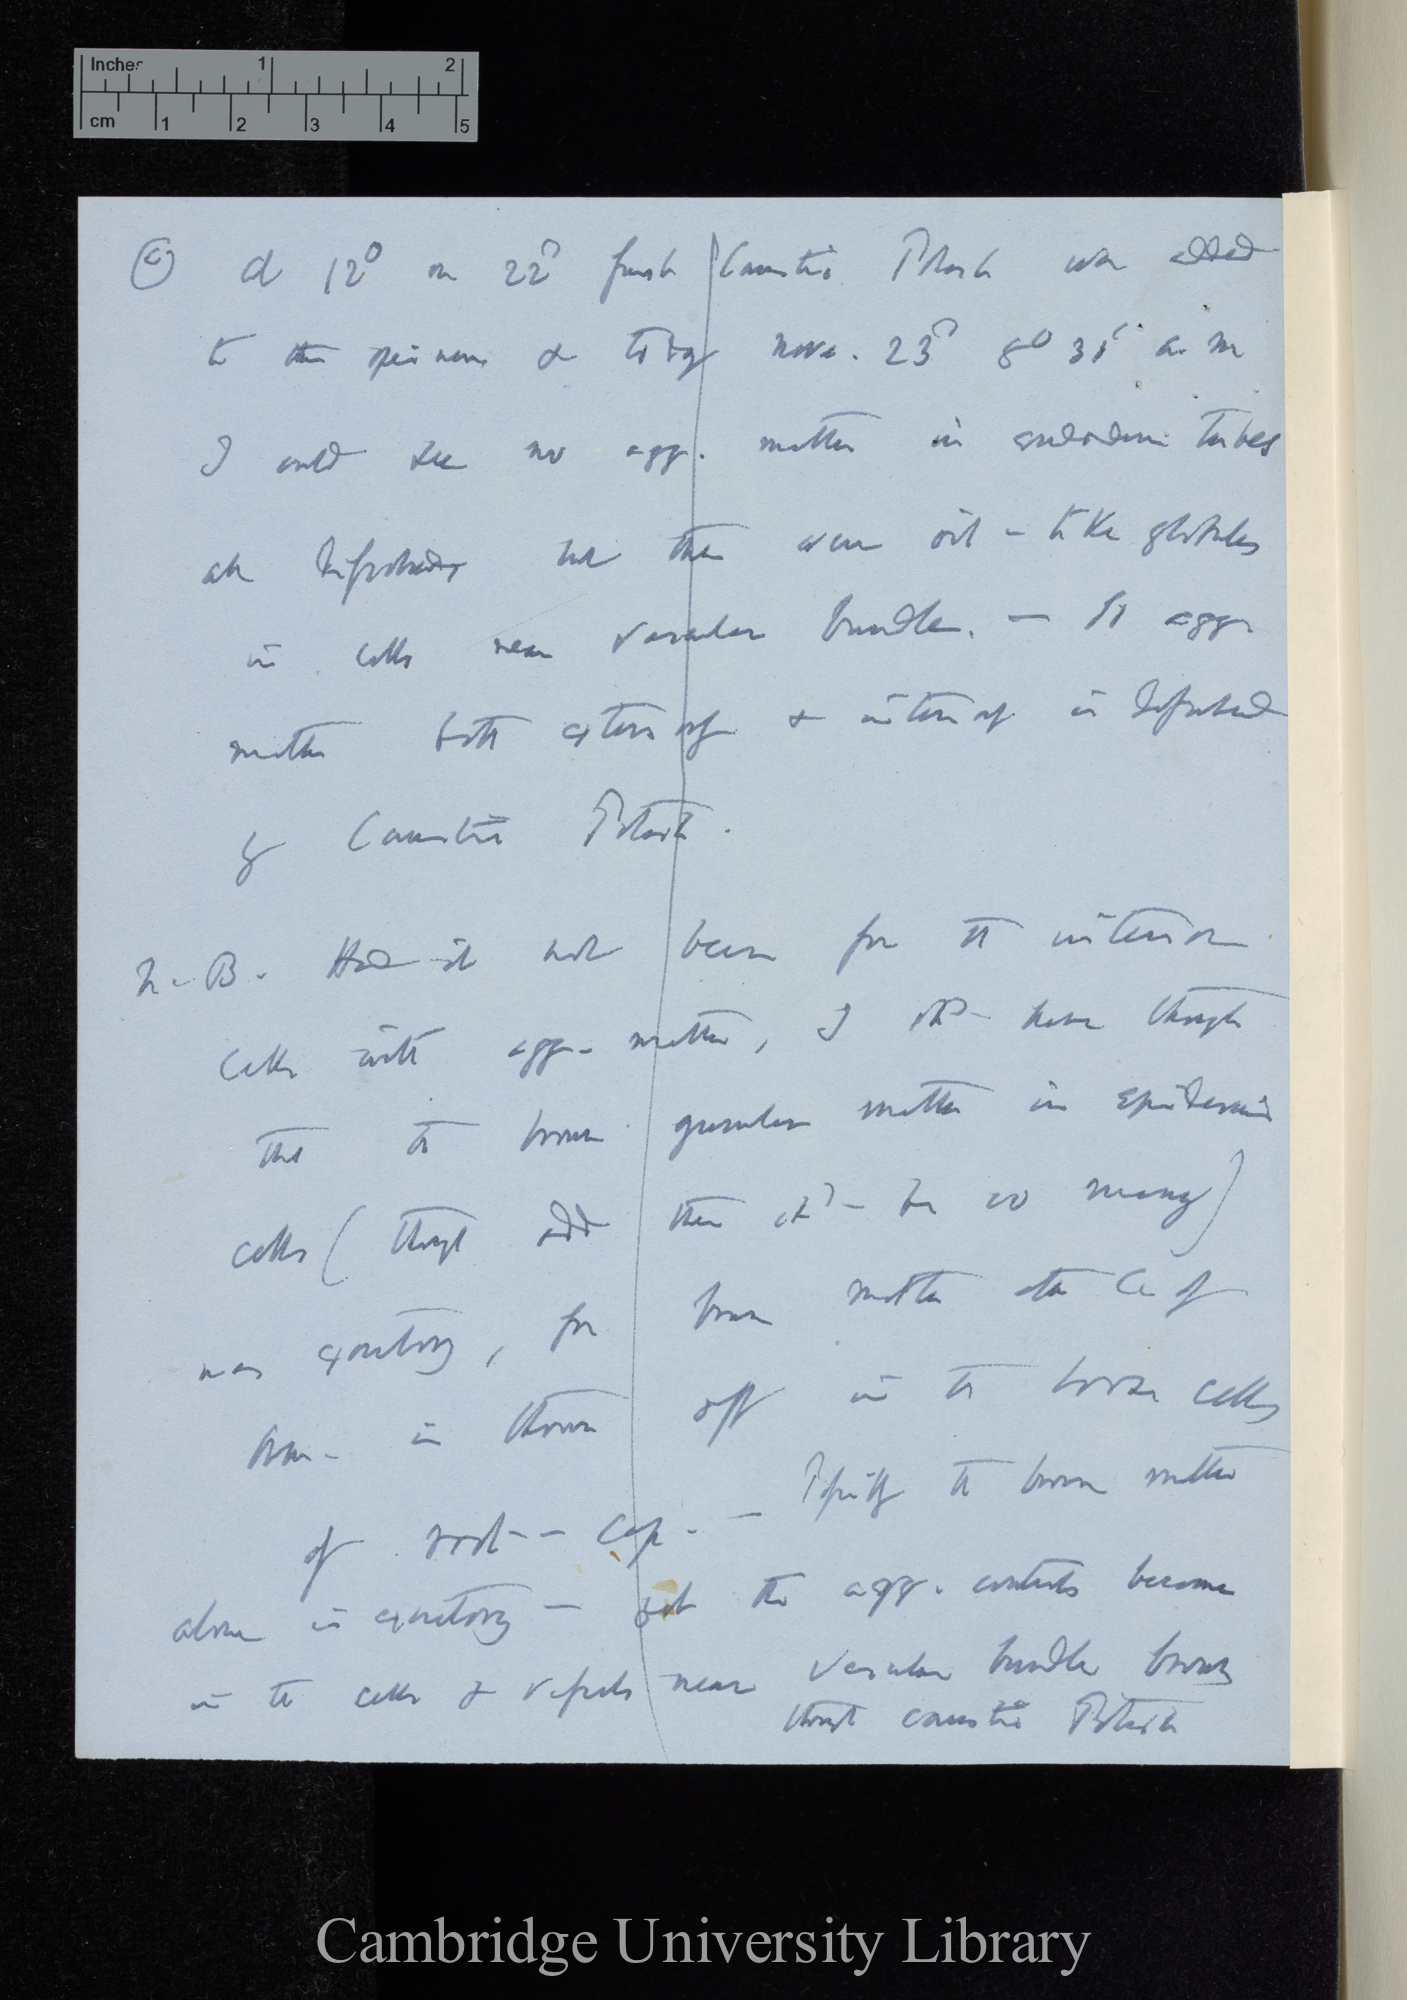 Inches 1 2
cm 1 2 3 4 5
(C) At 12° on 22ᵈ fresh Caustic Potash was added
to the specimens & today Nov. 23ᵈ 8° 3 a.m
I could see no agg. matter in tubes
all but there were oil-like globules
in cells near vascular bundle. — So aggr
matter both exterior & interior is dissolved
by Caustic Potash.
N.B. Had it not been for the interior
cells with agg. matter, I shᵈ have thought
that the brown granular matter in epidermic
cells (though odd there shᵈ be so many)
was excretory, for brown matter
is thrown off in the loose cells
of root-cap. — Possibly the brown matter
alone is excretory — yet the agg. contents become
in the cells & vessels near vascular bundle brown
through caustic Potash
Cambridge University Library